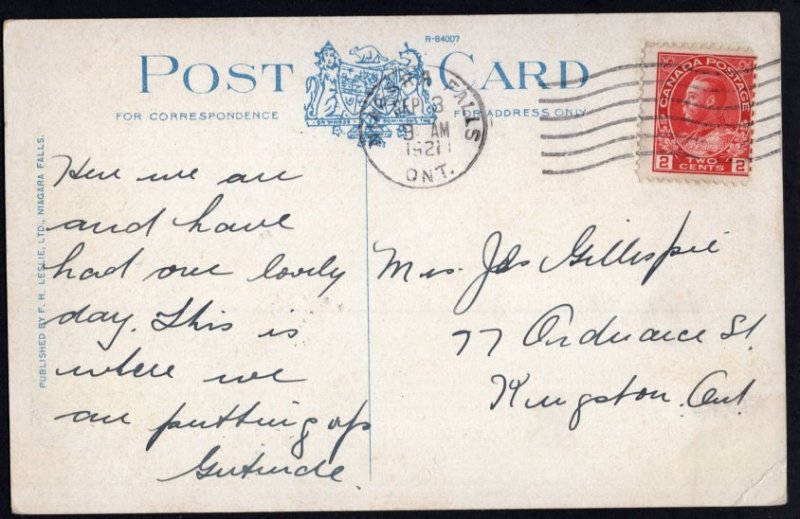 R-84007
POST CARD
FOR CORRESPONDENCE
FOR ADDRESS ONLY
NIAGARA FALLS
SEP 3
9 AM
1921
ONT.
CANADA POSTAGE
2 TWO CENTS 2
PUBLISHED BY F. H. LESLIE, LTD., NIAGARA FALLS.
Here we are
and have
had one lovely
day. This is
where we
are putting up
Gertrude.
Mrs. Jas Gillespie
77 Ordnance St.
Kingston. Ont.